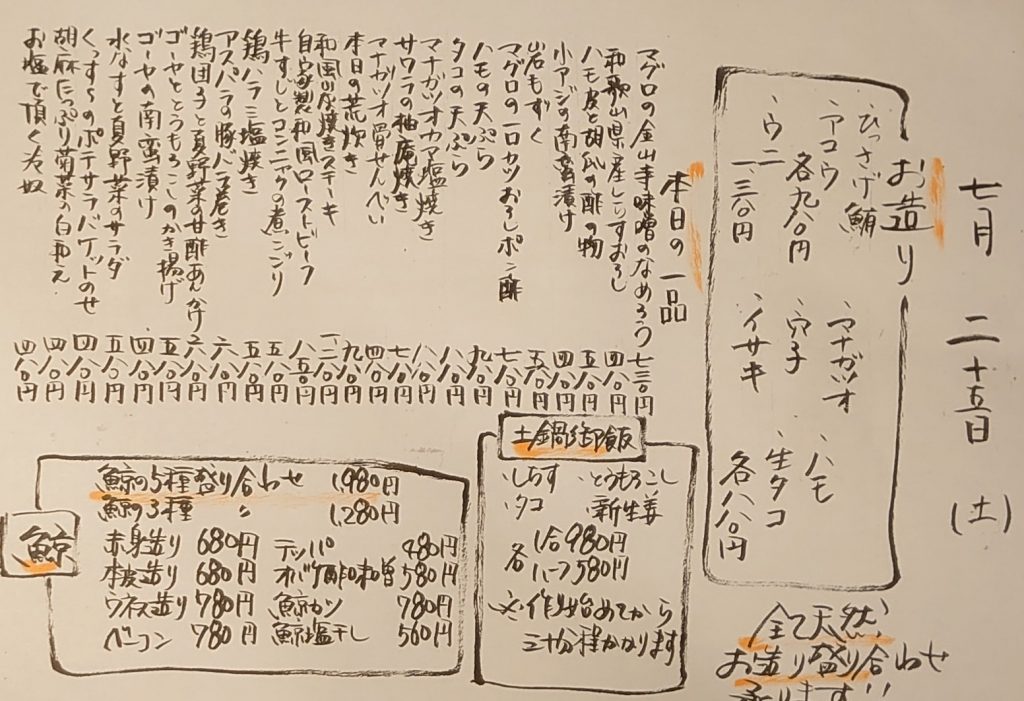 七月 二十五日 (土)
お造り
・ひっさげ鮪 ・マナガツオ ・ハモ
・アコウ ・穴子 ・生タコ
各九八〇円
・ウニ ・イサキ 各八八〇円
全て天然、
お造り盛り合わせ
承ります!!
本日の一品
マグロの金山寺味噌のなめろう 七三〇円
和歌山県産しらすおろし 四八〇円
ハモ皮と胡瓜の酢の物 五八〇円
小アジの南蛮漬け 四八〇円
岩もずく 五八〇円
マグロの一口カツおろしポン酢 七八〇円
ハモの天ぷら 九八〇円
タコの天ぷら 八八〇円
マナガツオカマ塩焼き 八八〇円
サワラの柚庵焼き 七八〇円
マナガツオ骨せんべい 四八〇円
本日の荒炊き 九八〇円
和風 ステーキ 一二八〇円
自家製和風ローストビーフ 八五〇円
牛すじとコンニャクの煮こごり 五八〇円
鶏ハラミ塩焼き 五八〇円
アスパラの豚バラ巻き 六八〇円
鶏団子と夏野菜の甘酢あんかけ 六八〇円
ゴーヤととうもろこしのかき揚げ 五八〇円
ゴーヤの南蛮漬け 四八〇円
水なすと夏野菜のサラダ 五八〇円
ポテサラバケットのせ 四八〇円
胡麻たっぷり菊菜の白和え 四八〇円
お塩で頂く冷奴 四八〇円
土鍋御飯
・しらす ・とうもろこし
・タコ ・新生姜
各 1合980円
ハーフ580円
※作り始めてから
三十分程かかります
鯨
鯨の5種盛り合わせ 1,980円
鯨の3種 〃 1,280円
赤身造り 680円 テッパ 480円
本皮造り 680円 オバケ酢味噌 580円
ウネス造り 780円 鯨カツ 780円
ベーコン 780円 鯨塩干し 560円